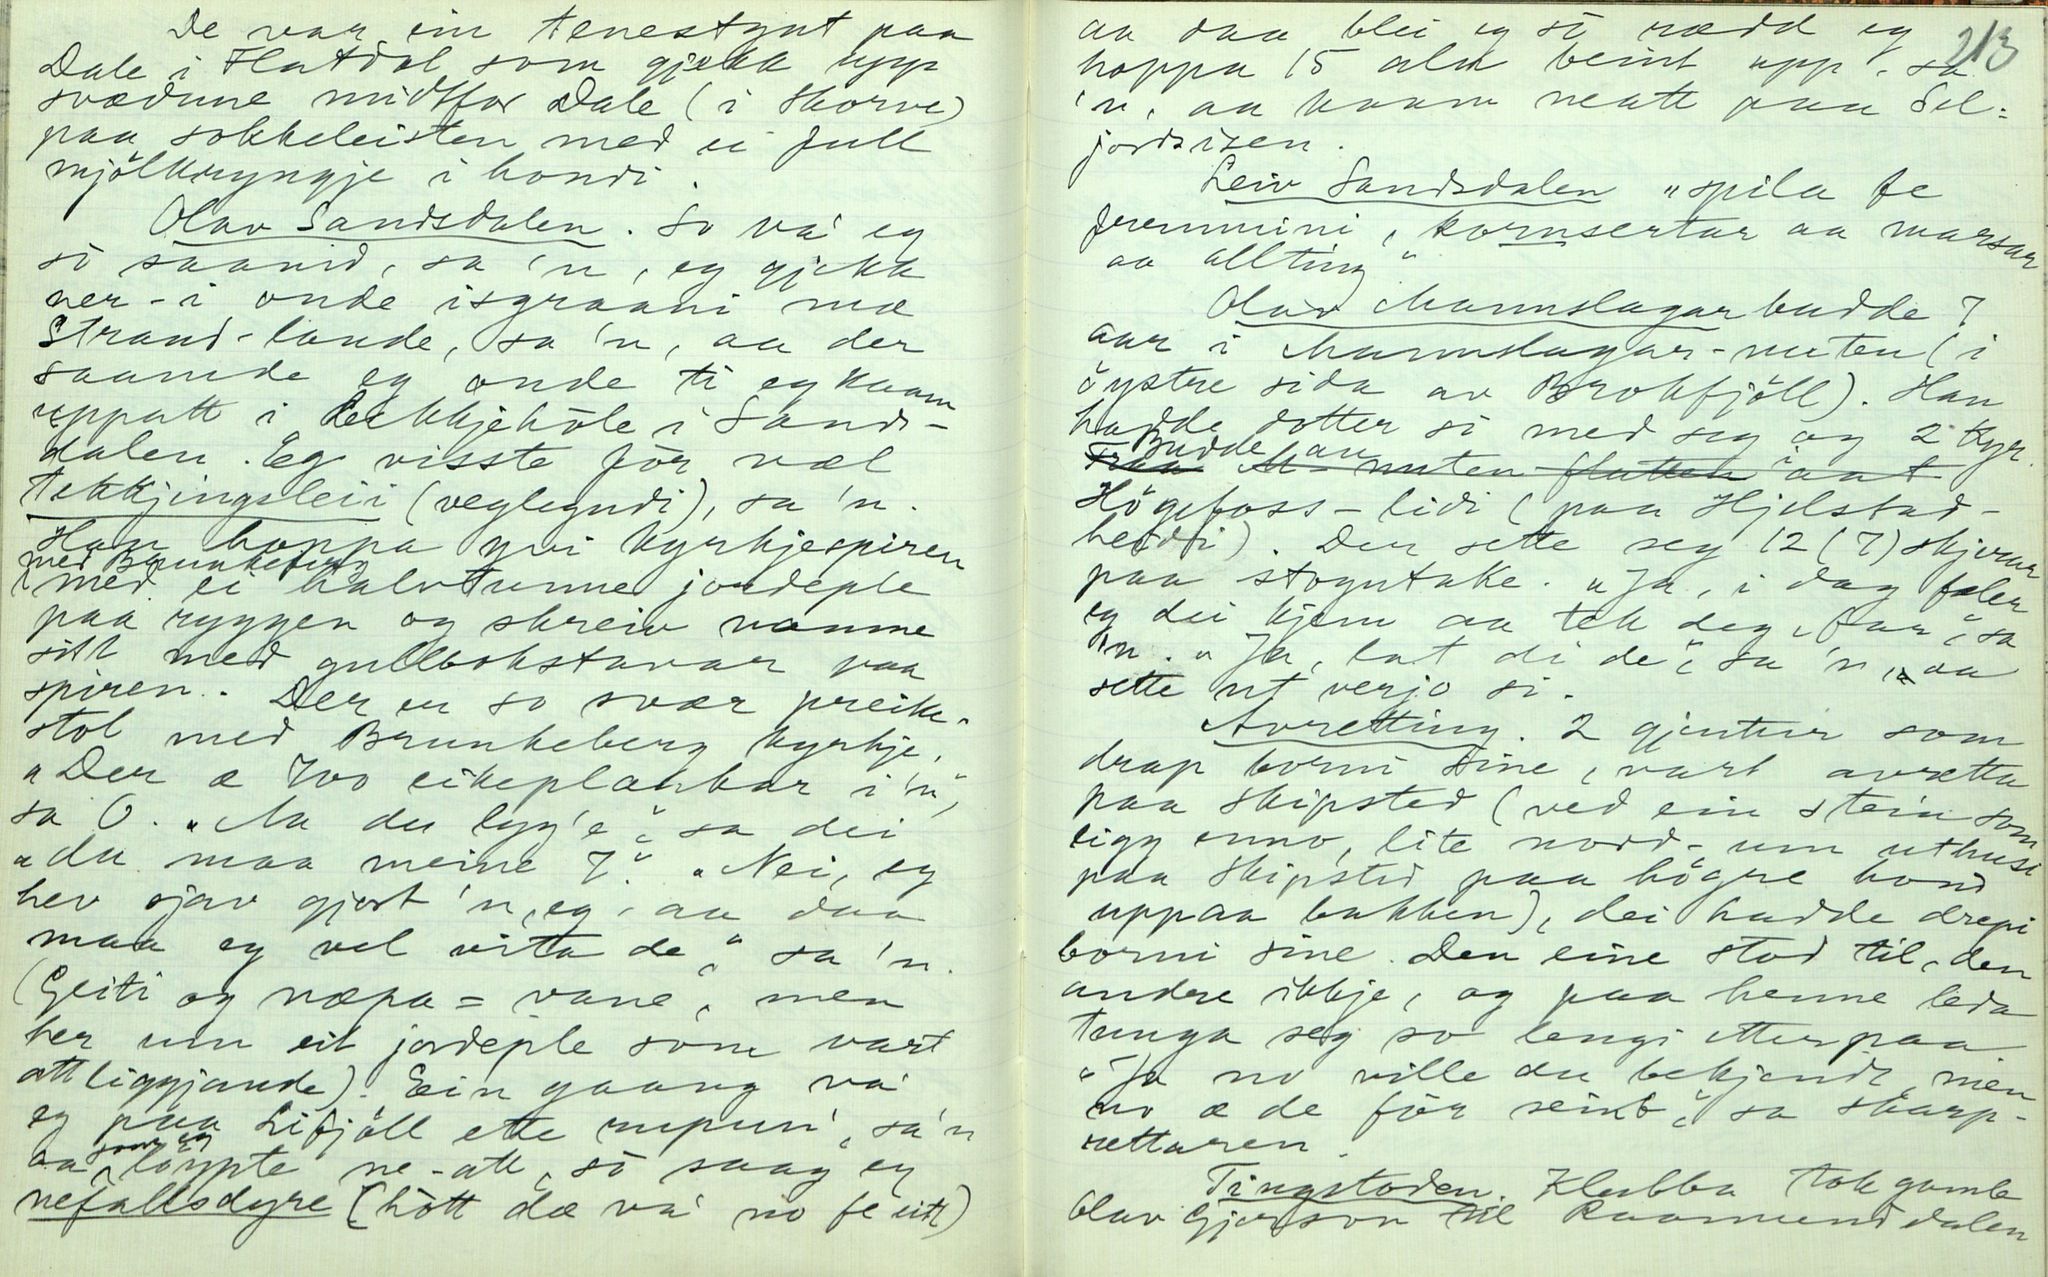 De var ein tenestgut paa
Dale i Flatdal som gjekk upp
svædune midtfor Dale (i Skorve)
paa sokkeleisten med ei full
mjölkryngje i hondi.
Olav Sandsdalen. So va' eg
so saamd, sa 'n, eg gjekk
ner-i onde isgraani mæ
Strand-lande, sa 'n, aa der
saamde eg onde ti eg kaam
uppatt i Lekkjehöle i Sands-
dalen. Eg visste för væl
tekkjingsleii (veglegndi), sa 'n.
Han hoppa yvi kyrkjespiren
med Brunkeberg
med ei halvtunne jordeple
paa ryggen og skreiv namne
sitt med gullbokstavar paa
spiren. Der er so svær preike-
stol med Brunkeberg kyrkje.
"Der æ 700 eikeplankar i 'n",
sa O. "Aa du lyg'e", sa dei
"du maa meine 7". "Nei, eg
hev sjøv gjort 'n, eg, aa daa
maa eg vel vita de", sa 'n.
(Geiti og næpa = vane, men
her um eit jordeple som vart
attliggjande). Ein gaang va'
eg paa Lifjöll ette rupun', sa'n
som eg
aa löypte ne-att, so saag eg
nefallsdyre (hòtt dæ va' no fe eitt)
213
aa daa blei eg so rædd eg
hoppa 15 aln beint upp, sa
'n, aa kaam neatt paa Sel-
jordsisen.
Leiv Sandsdalen "spila fe
fremmini, kornsertar aa marsar
aa allting"
Olav Mannslagar budde 7
aar i Mannslagar-nuten (i
öystre sida av Brokfjöll). Han
hadde dotter si med seg og 2 kyr.
Budde au i
Fraa M-nuten flutten aat
Högefoss-lidi (paa Hjelstad-
heidi). Der sette seg 12 (7) skjerar
paa stogutake. "Ja, i dag faler
eg dei kjem aa tek deg, far", sa
'n. "Ja, lat di de", sa 'n, aa
sette ut verjo si.
Avretting. 2 gjentur som
drap borni sine, vart avretta
paa Skipsted (ved ein stein som
ligg enno, lite nord-um uthusi
paa Skipsted paa högre hond
uppaa bakken), dei hadde drepi
borni sine. Den eine stod til, den
andre ikkje, og paa henne leda
tunga seg so lengi etterpaa.
"Ja no ville du bekjendt, men
no æ de för seint", sa skarp-
rettaren.
Tingstoden. Klubba tok gamle
Olav Gjerson til Raamunddalen